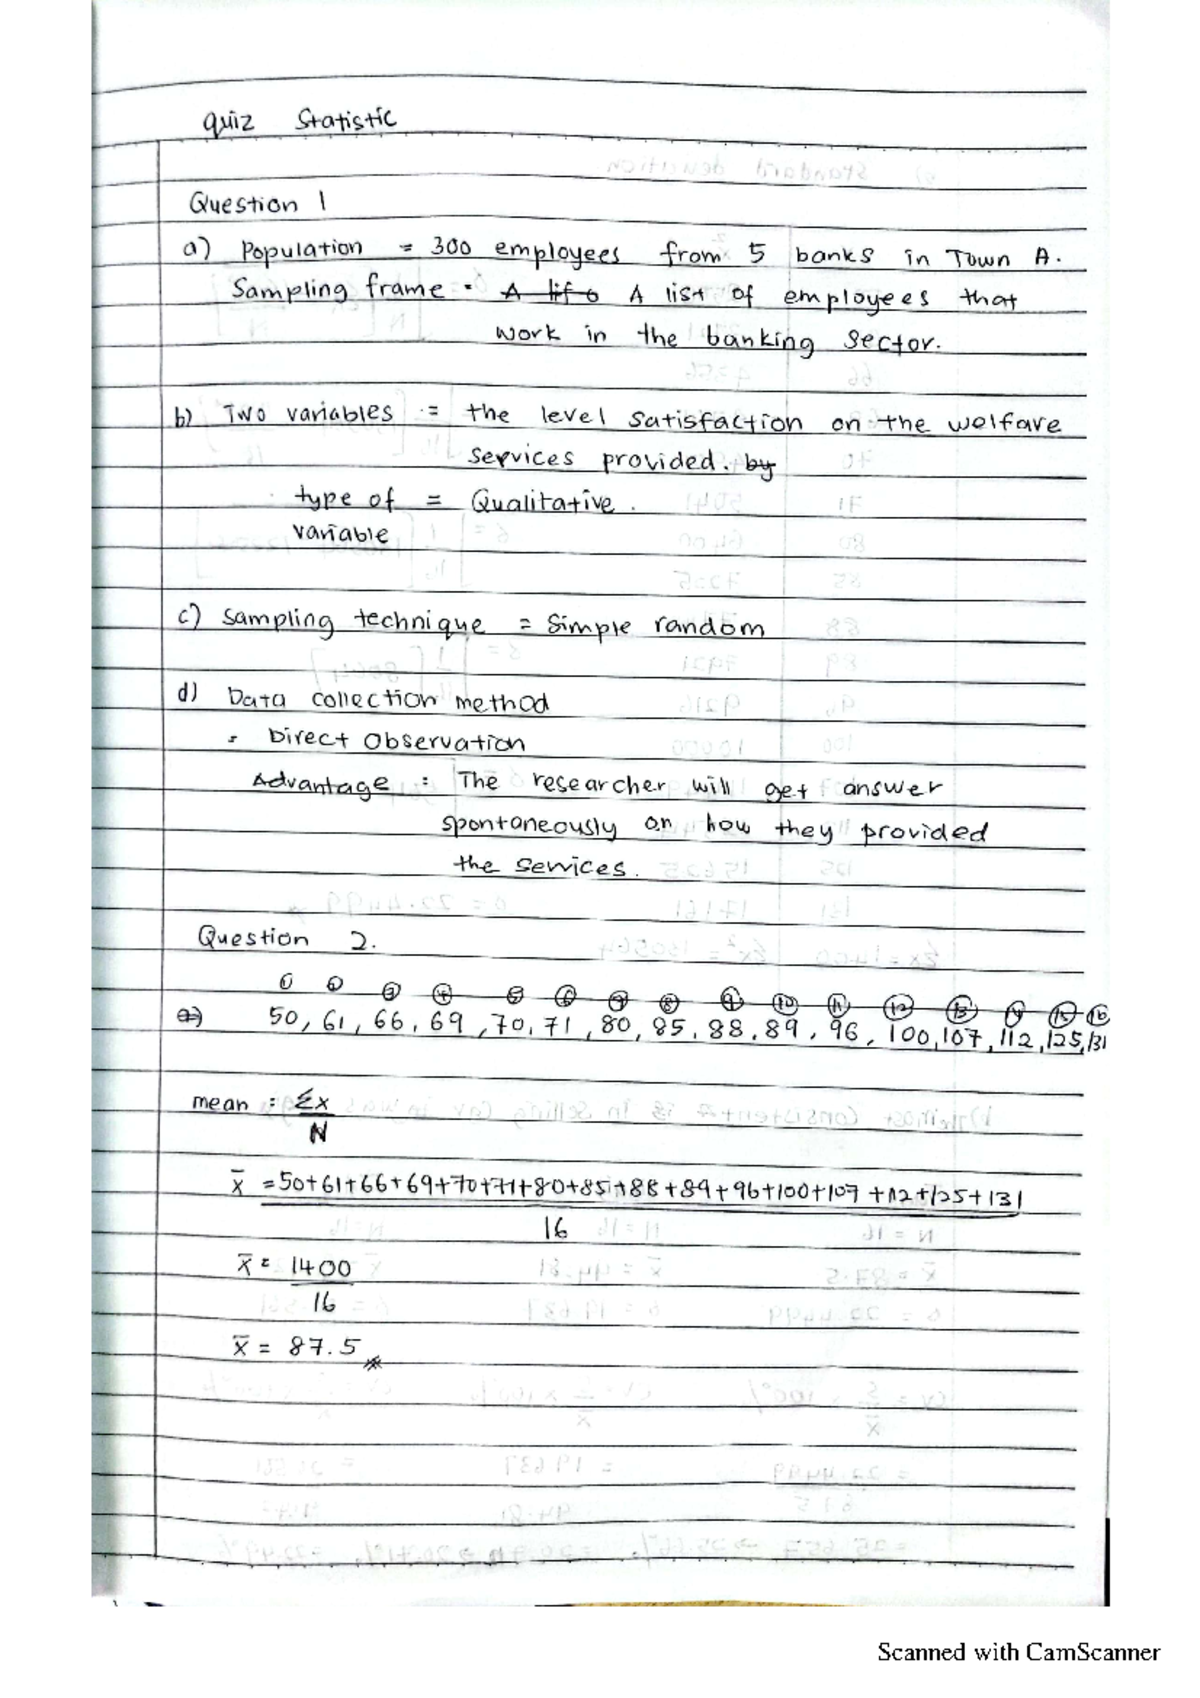 quiz Statistic
Question 1
a) Population = 300 employees from 5 banks in Town A.
Sampling frame = A lif o A list of employees that
work in the banking sector.
b) Two variables = the level satisfaction on the welfare
services provided. by
type of = Qualitative.
variable
c) Sampling technique = Simple random
d) Data collection method
= Direct Observation
Advantage : The researcher will get answer
spontaneously on how they provided
the services.
Question 2.
1 2 3 4 5 6 7 8 9 10 11 12 13 14 15 16
a) 50, 61, 66, 69, 70, 71, 80, 85, 88, 89, 96, 100, 107, 112, 125, 131
mean : Σx
N
x̄ = 50+61+66+69+70+71+80+85+88+89+96+100+107+112+125+131
16
x̄ = 1400
16
x̄ = 87.5
Scanned with CamScanner